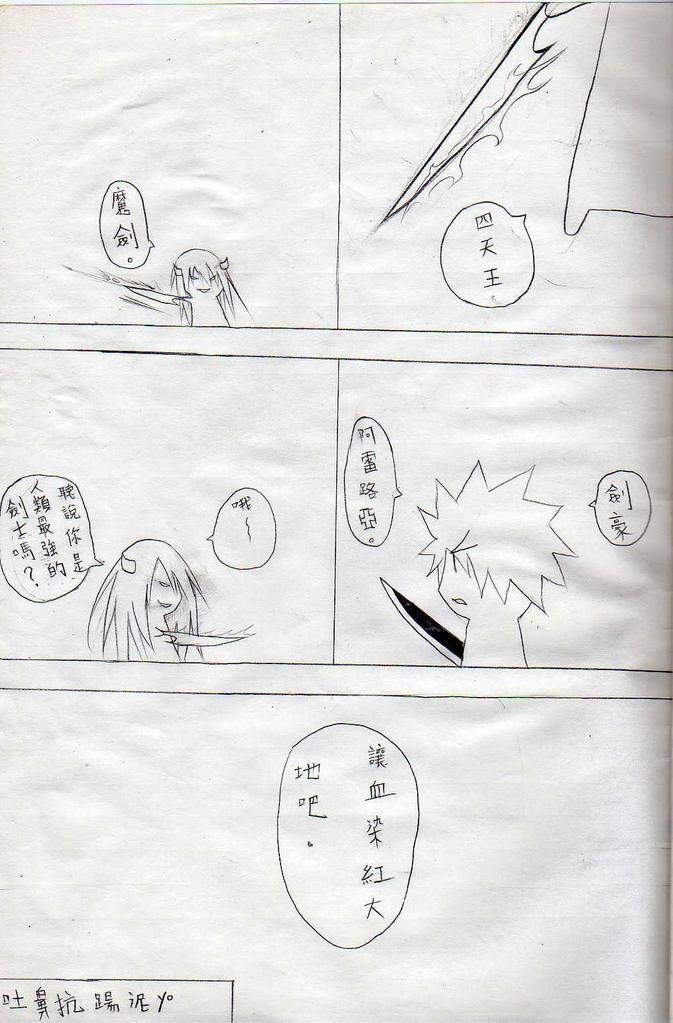 四天王
魔劍。
劍豪
阿雷路亞。
哦～
聽說你是
人類最強的
劍士嗎？
讓血染紅大
地吧。
吐鼻抗踢泥yo